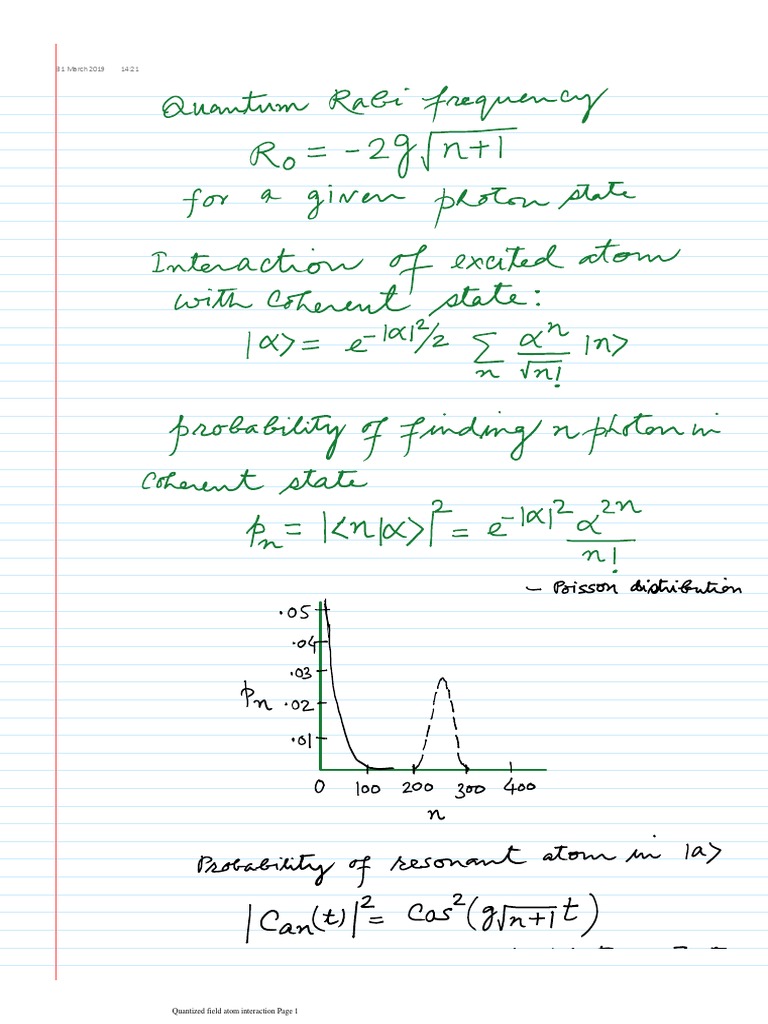 31 March 2019 14:21
Quantum Rabi frequency
R₀ = -2g√(n+1)
for a given photon state
Interaction of excited atom
with Coherent state:
|α> = e^(-|α|²/2) Σ_n αⁿ/√n! |n>
probability of finding n photon in
Coherent state
pₙ = |<n|α>|² = e^(-|α|²) α^(2n)/n!
- Poisson distribution
.05
.04
.03
pₙ .02
.01
0 100 200 300 400
n
Probability of resonant atom in |a>
|Can(t)|² = Cos²(g√(n+1) t)
Quantized field atom interaction Page 1